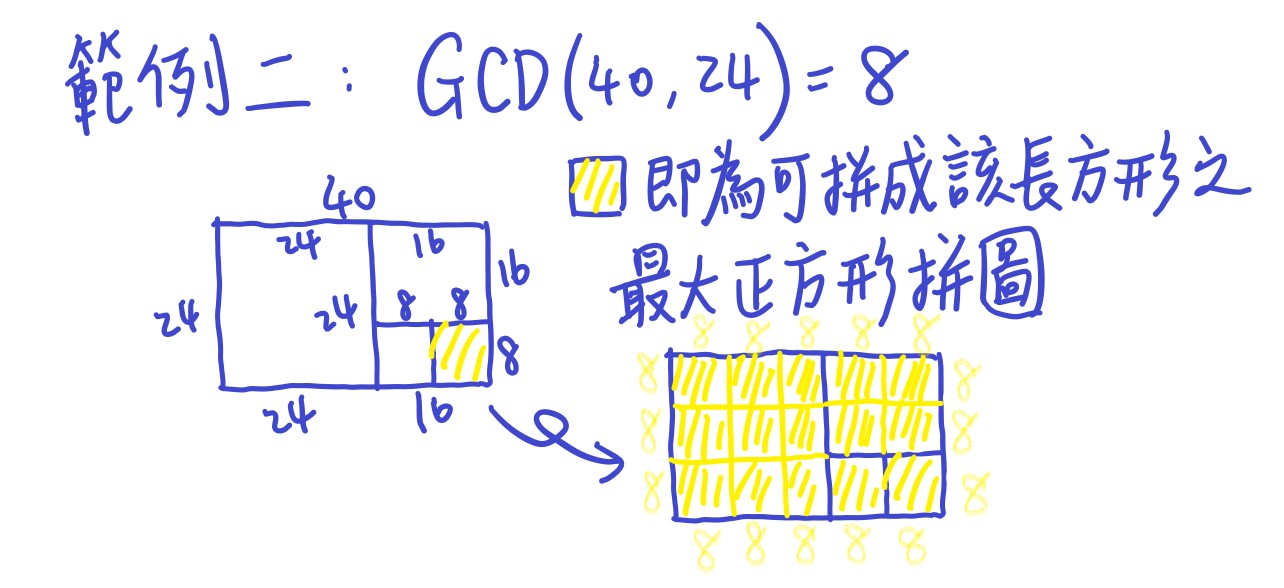 範例二：GCD(40,24)=8
即為可拼成該長方形之
最大正方形拼圖
40
24 16
16
24 24 8 8
8
24 16
8 8 8 8 8
8 8
8 8
8 8
8 8 8 8 8